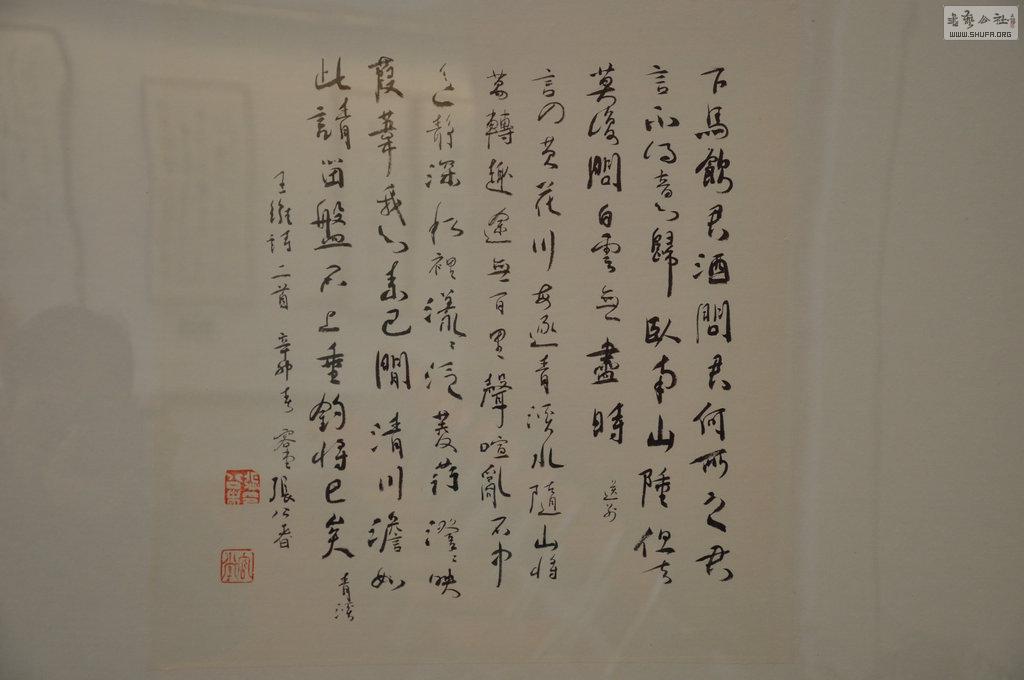 下馬飲君酒問君何所之君
言不得意歸臥南山陲但去
莫復問白雲無盡時 送别
言入黄花川每逐青溪水隨山將
萬轉趣途無百里聲喧亂石中
色靜深松裡漾〻泛菱荇澄〻映
葭葦我心素已閒清川澹如
此請留盤石上垂釣將已矣 青溪
王維詩二首 辛卯春 張公者
書藝公社
WWW.SHUFA.ORG